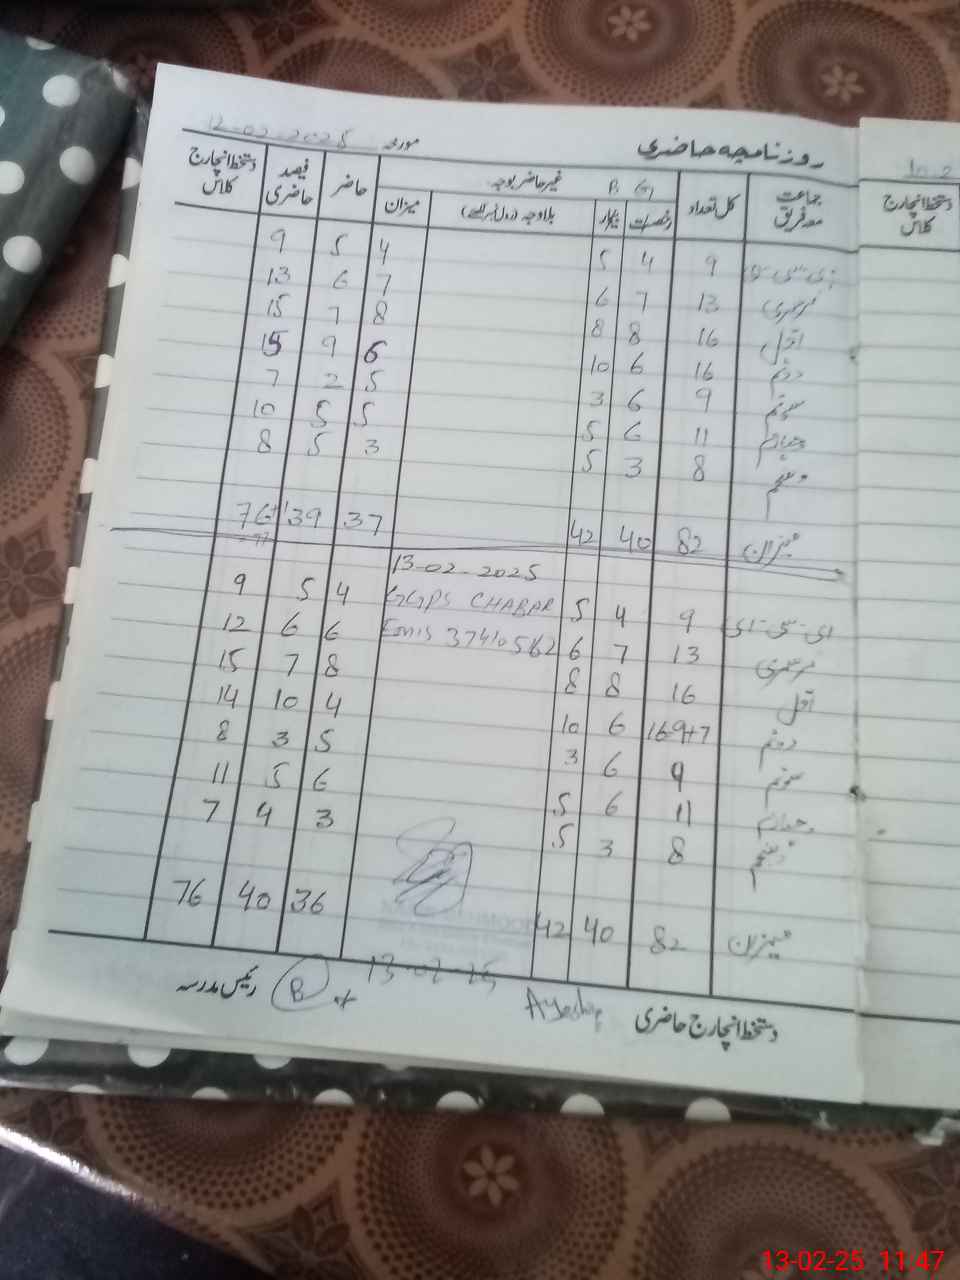 روزنامچہ حاضری مورخہ 12-02-2025
جماعت معہ فریق کل تعداد غیر حاضر بوجہ B G حاضر فیصد حاضری دستخط انچارج کلاس
رخصت بیمار بلاوجہ (رول نمبر لکھیے) میزان
ای-سی-ای 9 4 5 4 5 9
نرسری 13 7 6 7 6 13
اول 16 8 8 8 7 15
دوئم 16 6 10 6 9 15
سوئم 9 6 3 5 2 7
چہارم 11 6 5 5 5 10
پنجم 8 3 5 3 5 8
میزان 82 40 42 37 39 76
13-02-2025
ای-سی-ای 9 4 5 GGPS CHABAR 4 5 9
نرسری 13 7 6 Emis 37410562 6 6 12
اول 16 8 8 8 7 15
دوئم 16 9+7 6 10 4 10 14
سوئم 9 6 3 5 3 8
چہارم 11 6 5 6 5 11
پنجم 8 3 5 3 4 7
میزان 82 40 42 36 40 76
13-02-25
دستخط انچارج حاضری Ayesha B رئیس مدرسہ
دستخط انچارج کلاس
13-02-25 11:47